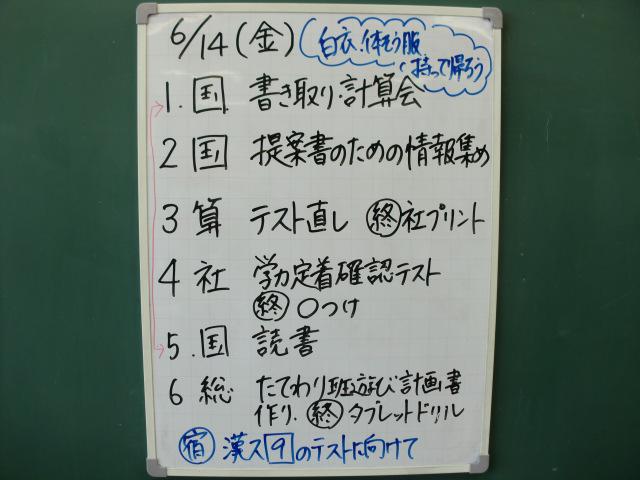 6/14(金)
白衣、体そう服
持って帰ろう
1. 国 書き取り・計算会
2 国 提案書のための情報集め
3 算 テスト直し 終 社プリント
4 社 学力定着確認テスト
終 〇つけ
5. 国 読書
6 総 たてわり班遊び計画書
作り. 終 タブレットドリル
宿 漢ス9のテストに向けて